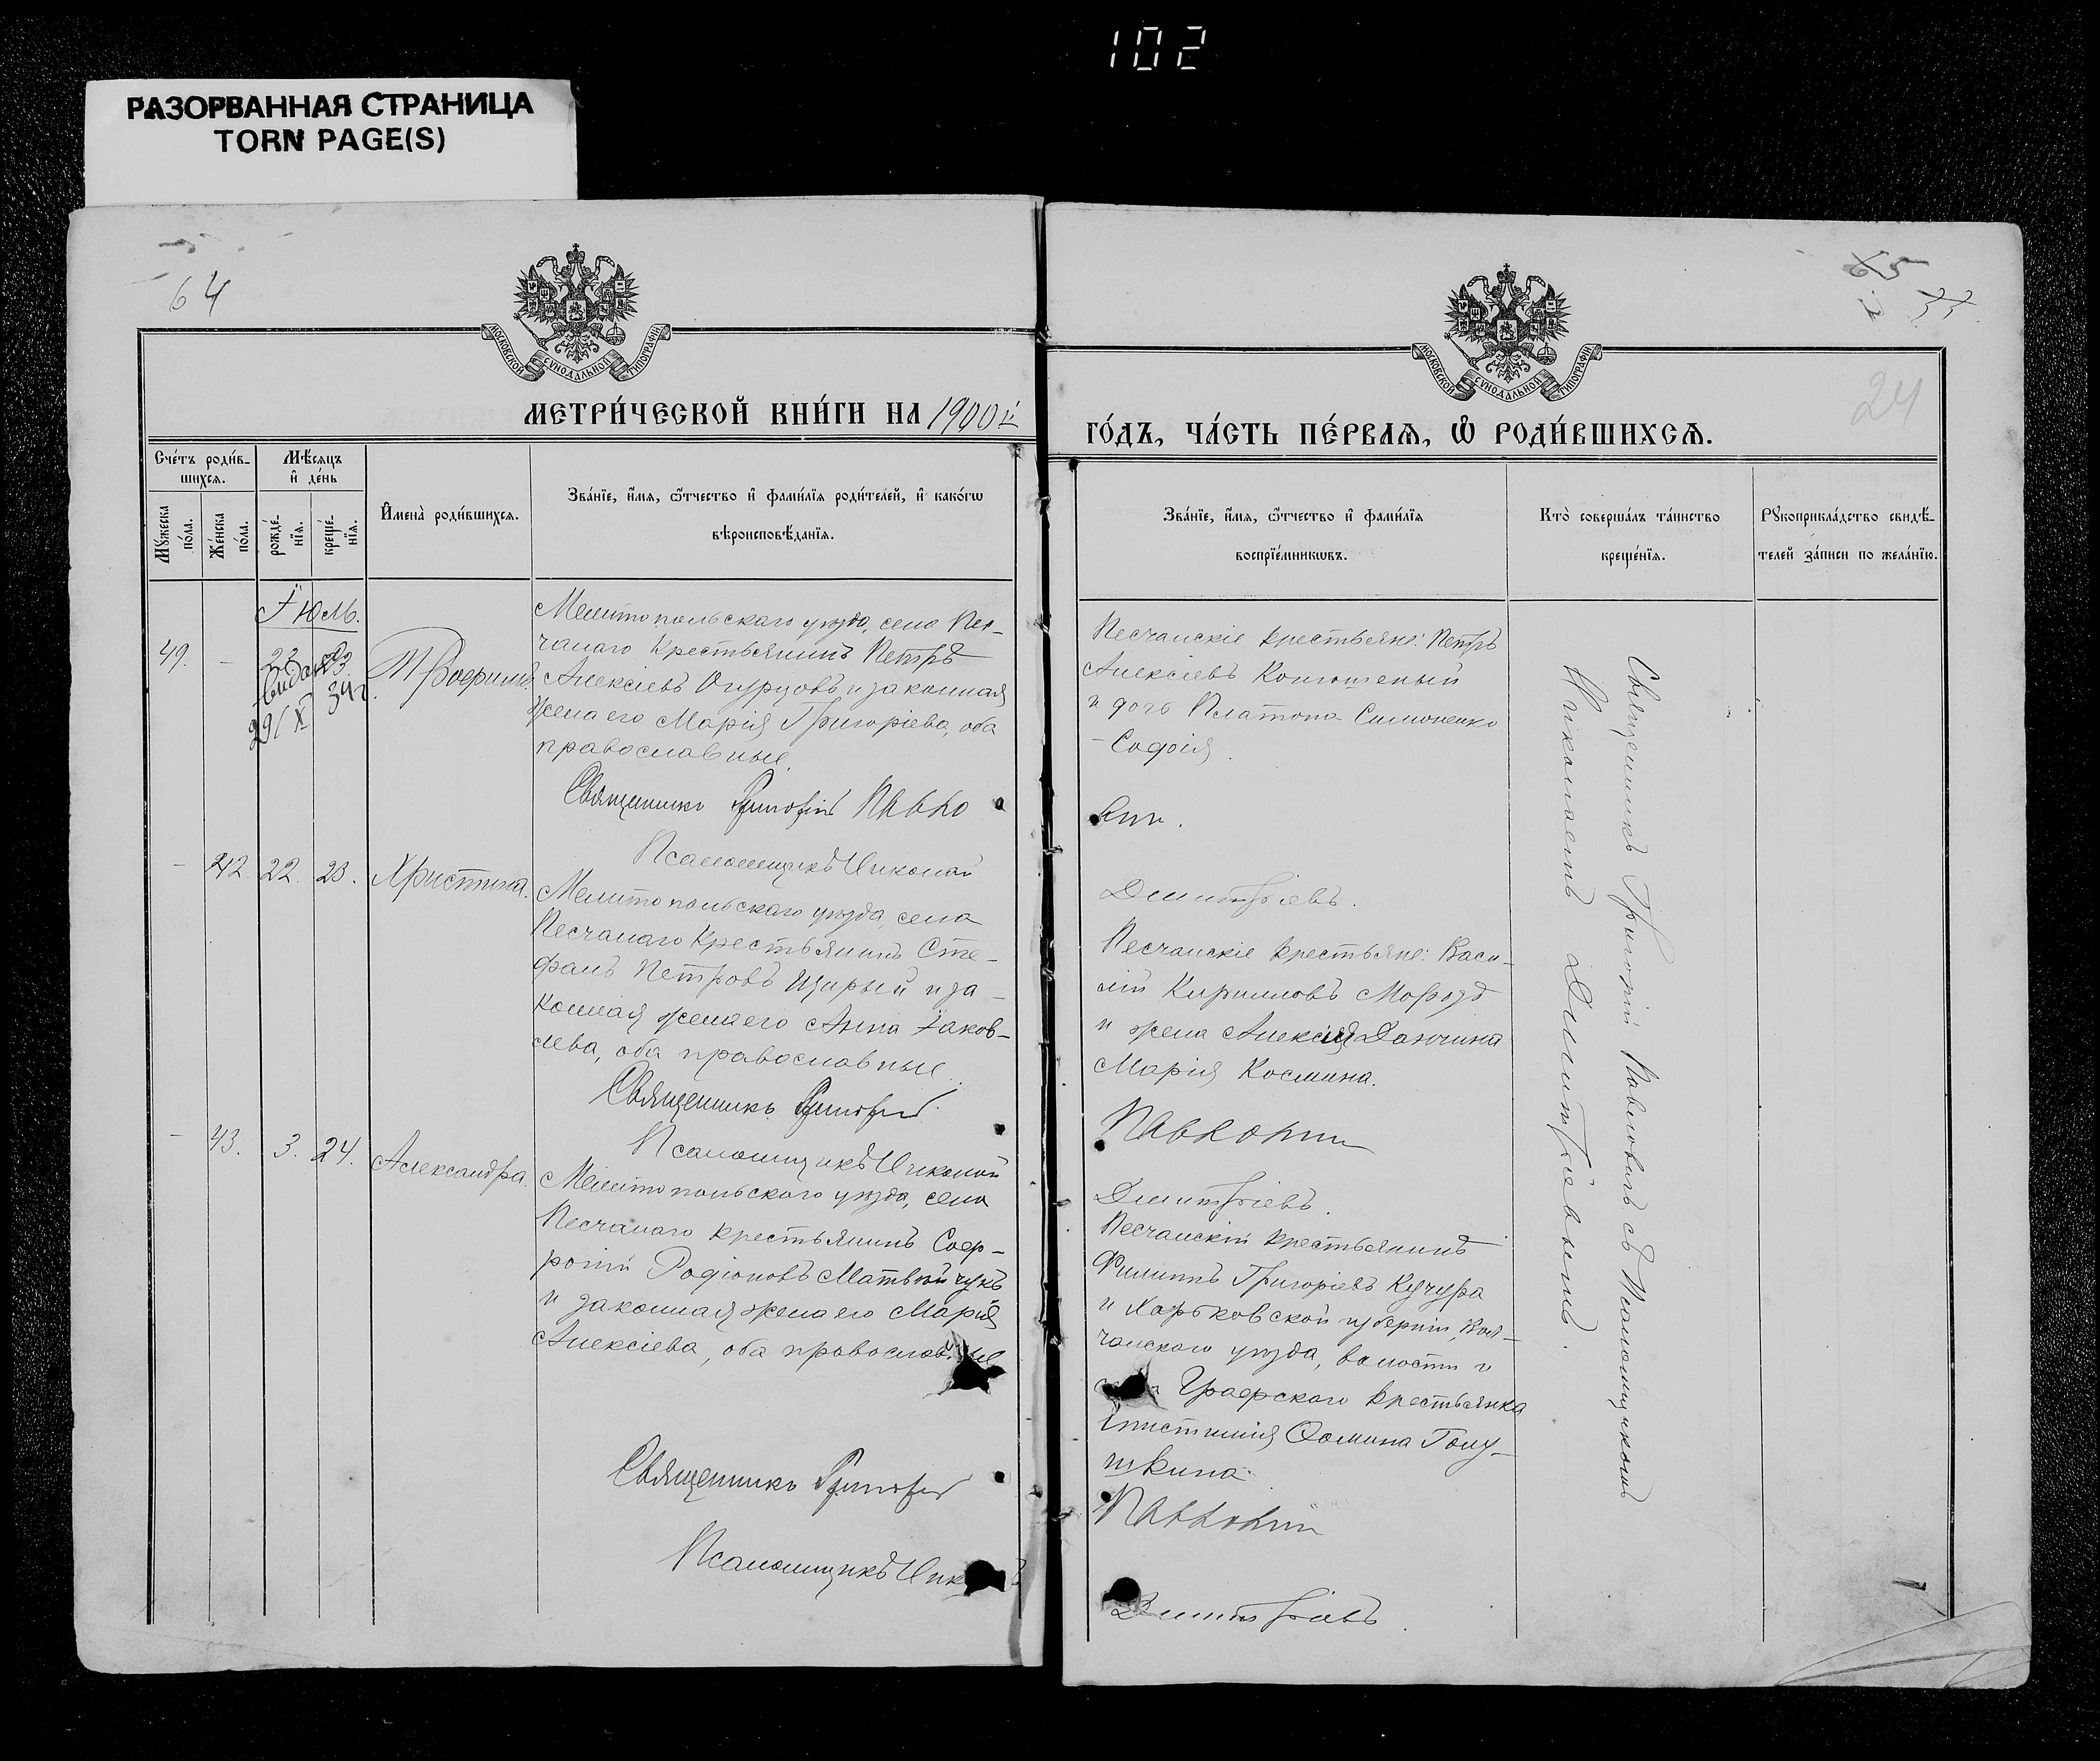 102
РАЗОРВАННАЯ СТРАНИЦА
TORN PAGE(S)
64
МОСКОВСКОЙ СУНОДАЛЬНОЙ ТИПОГРАФІИ
МЕТРИ́ЧЕСКОЙ КНИ́ГИ НА 1900й
Сче́тъ роди́в-
шихся.
Мѣ́сяцъ
и҆ де́нь
Мꙋ́жеска
по́ла.
Же́нска
по́ла.
рожде́-
нїя.
креще́-
нїя.
И҆мена̀ роди́вшихся.
Зва́нїе, и҆́мя, ѻ҆́тчество и҆ фами́лїя роди́телей, и҆ како́гѡ
вѣроисповѣ́данїя.
Іюль.
49. - 22 23. Трофимъ.
видан
29/X 34г.
Мелитопольскаго уѣзда, села Пес-
чанаго крестьянинъ Петръ
Алексіевъ Огурцовъ и законная
жена его Марія Григоріева, оба
православные.
Священникъ Григорій Павло
Псаломщикъ Николай
- 42. 22. 23. Христина.
Мелитопольскаго уѣзда, села
Песчанаго крестьянинъ Сте-
фанъ Петровъ Щирый и за-
конная жена его Анна Іаков-
лева, оба православные.
Священникъ Григорій
Псаломщикъ Николай
- 43. 3. 24. Александра.
Мелитопольскаго уѣзда, села
Песчанаго крестьянинъ Соф-
роній Родіоновъ Матвѣйчукъ
и законная жена его Марія
Алексіева, оба православные
Священникъ Григорій
Псаломщикъ Ник
65
24
МОСКОВСКОЙ СУНОДАЛЬНОЙ ТИПОГРАФІИ
ГО́ДЪ, ЧА́СТЬ ПЕ́РВАЯ, Ѽ РОДИ́ВШИХСЯ.
Зва́нїе, и҆́мя, ѻ҆́тчество и҆ фами́лїя
воспрїе́мникѡвъ.
Кто̀ соверша́лъ та́инство
креще́нїя.
Рꙋкоприкла́дство свидѣ́-
телей за́писи по жела́нїю.
Песчанскіе крестьяне: Петръ
Алексіевъ Конюшеный
и дочь Платона Симоненко
- Софія.
Димитріевъ.
Песчанскіе крестьяне: Васи-
лій Кирилловъ Морозъ
и жена Алексія Данчина
Марія Космина.
Павловичъ
Димитріевъ.
Песчанскій крестьянинъ
Филиппъ Григоріевъ Кучура
и Харьковской губерніи, Вол-
чанского уѣзда, волости и
Графского крестьянка
Фомина Голу-
шкина.
Павловичъ
Димитріевъ.
Священникъ Григорій Павловичъ съ Псаломщикомъ
Николаемъ Димитріевымъ.